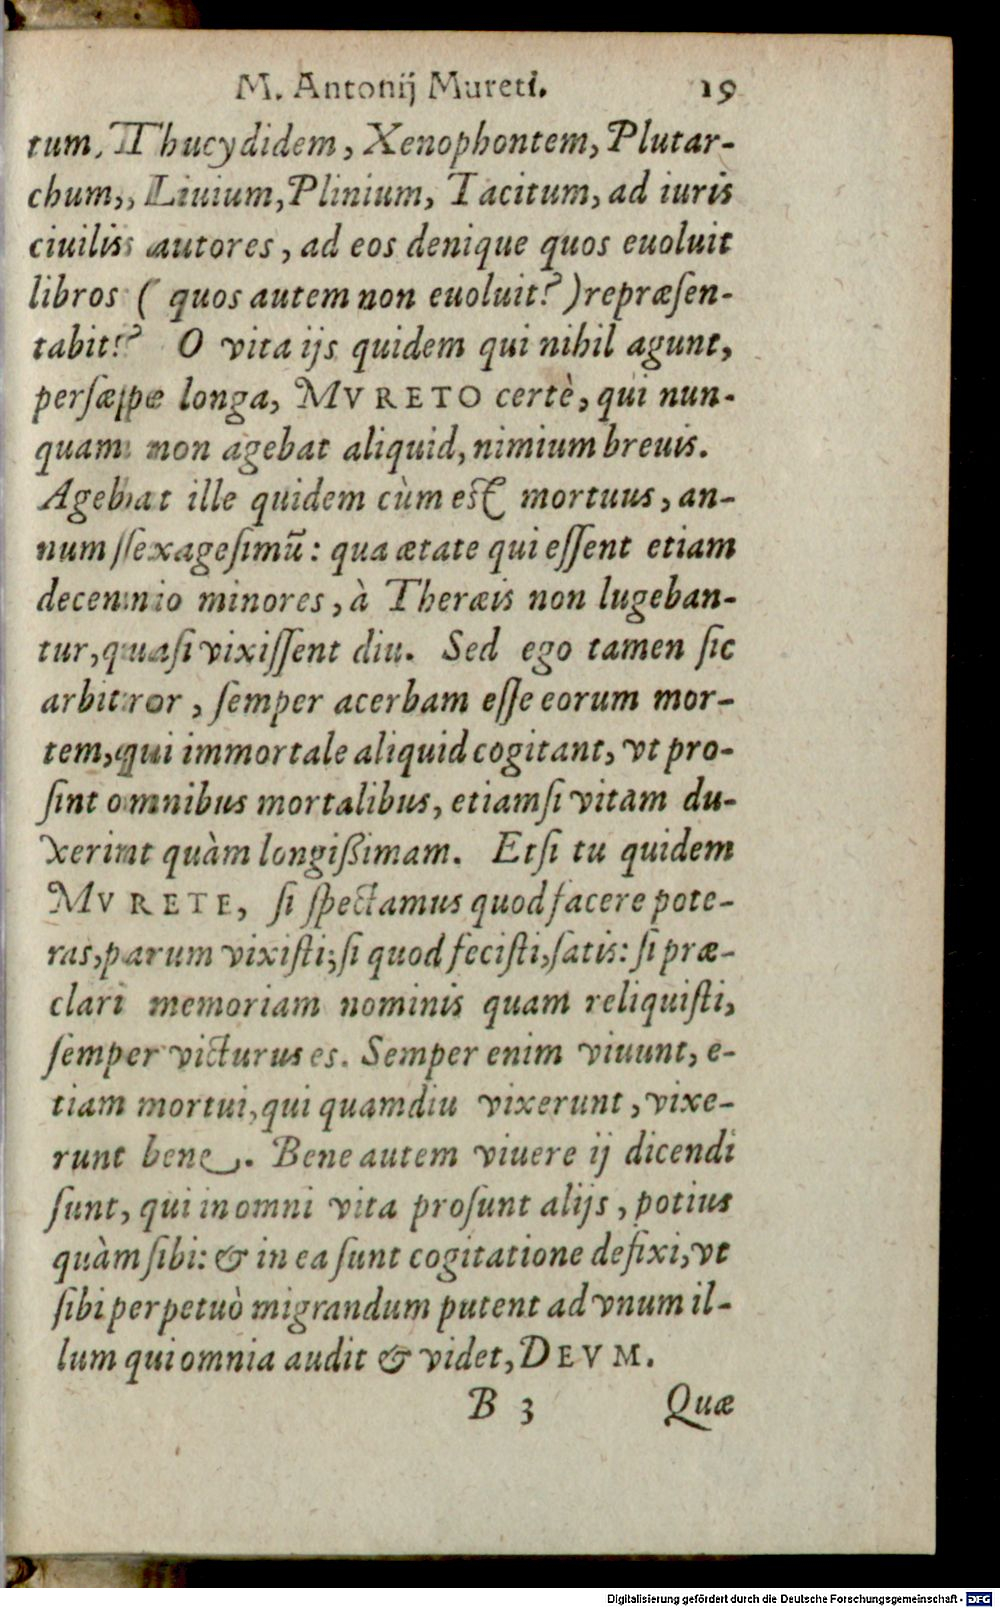 M. Antonij Mureti. 19
tum, Thucydidem, Xenophontem, Plutar-
chum, Liuium, Plinium, Tacitum, ad iuris
ciuilis autores, ad eos denique quos euoluit
libros ( quos autem non euoluit? ) repræſen-
tabit? O vita ijs quidem qui nihil agunt,
perſæpe longa, MVRETO certè, qui nun-
quam non agebat aliquid, nimium breuis.
Agebat ille quidem cùm est mortuus, an-
num ſexageſimū: qua ætate qui eſſent etiam
decennio minores, à Theræis non lugeban-
tur, quaſi vixiſſent diu. Sed ego tamen ſic
arbitror, ſemper acerbam eſſe eorum mor-
tem, qui immortale aliquid cogitant, vt pro-
ſint omnibus mortalibus, etiamſi vitam du-
xerint quàm longißimam. Etſi tu quidem
MVRETE, ſi ſpectamus quod facere pote-
ras, parum vixiſti; ſi quod feciſti, ſatis: ſi præ-
clari memoriam nominis quam reliquiſti,
ſemper victurus es. Semper enim viuunt, e-
tiam mortui, qui quamdiu vixerunt, vixe-
runt bene. Bene autem viuere ij dicendi
ſunt, qui in omni vita proſunt alijs, potius
quàm ſibi: & in ea ſunt cogitatione defixi, vt
ſibi perpetuò migrandum putent ad vnum il-
lum qui omnia audit & videt, DEVM.
B 3 Quæ
Digitalisierung gefördert durch die Deutsche Forschungsgemeinschaft - DFG